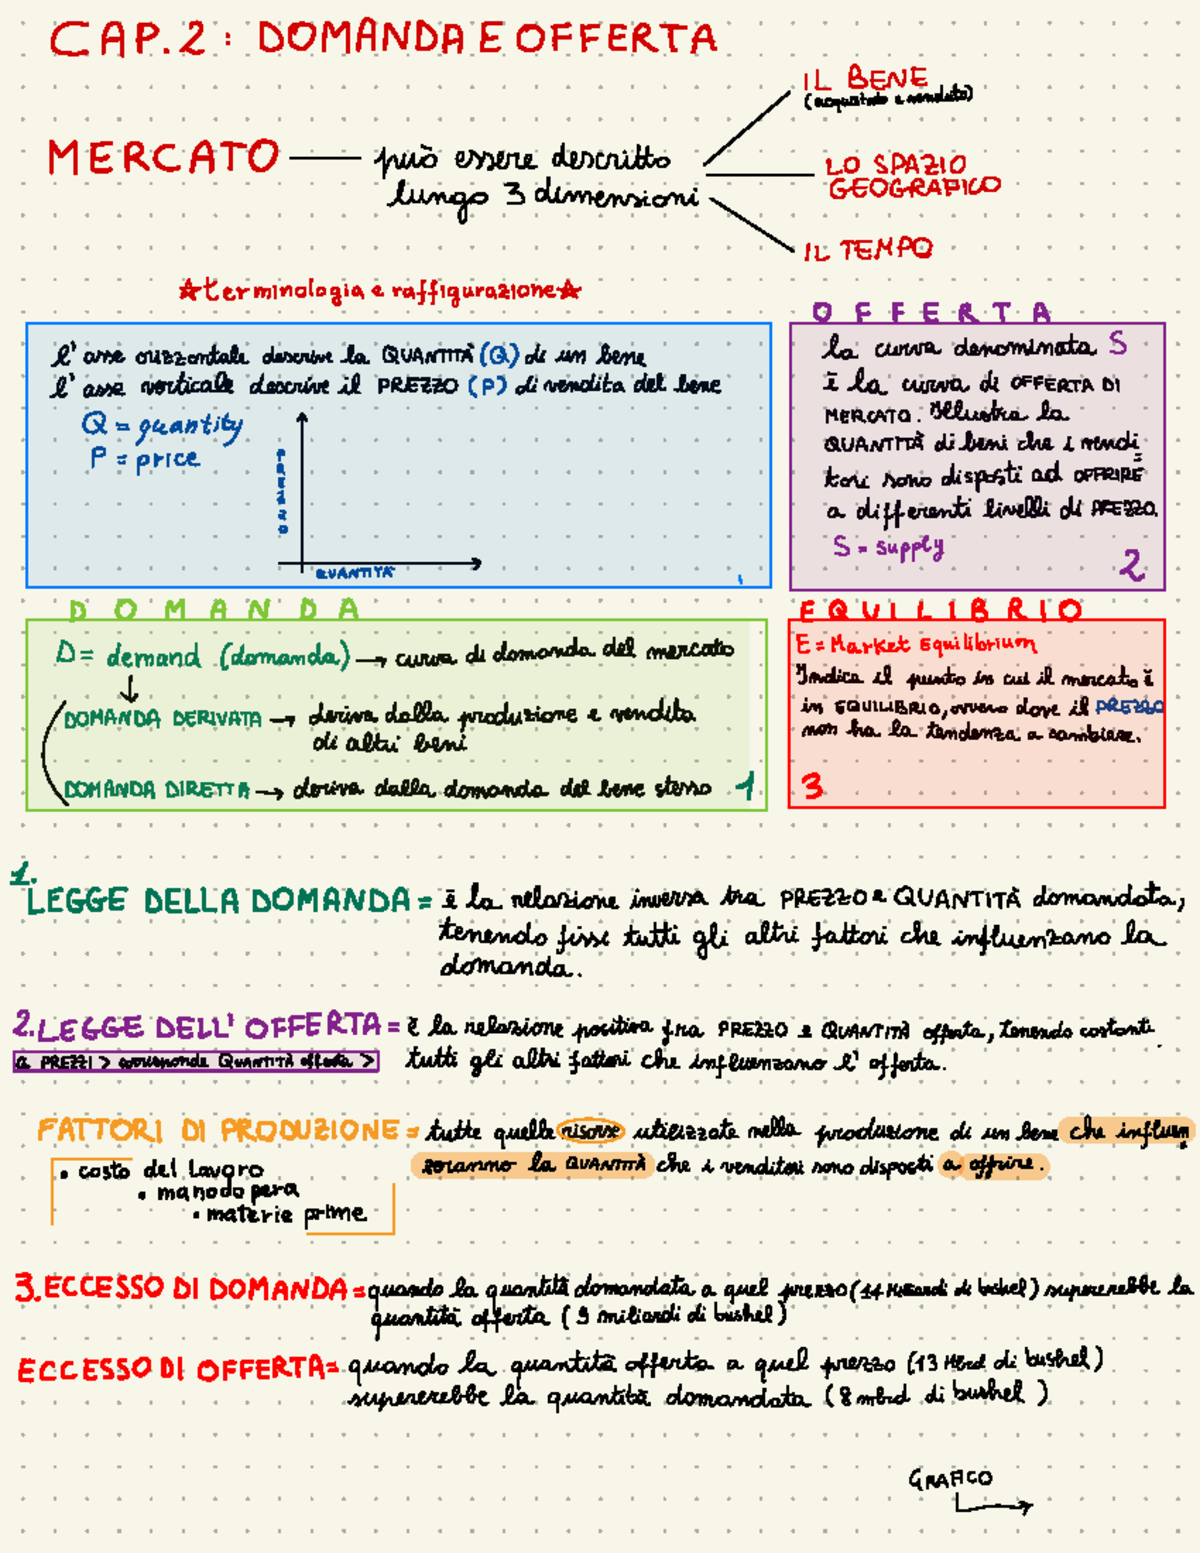 CAP.2: DOMANDA E OFFERTA
IL BENE
(acquistato e venduto)
MERCATO — può essere descritto
lungo 3 dimensioni
LO SPAZIO
GEOGRAFICO
IL TEMPO
☆terminologia e raffigurazione☆
l'asse orizzontale descrive la QUANTITÀ (Q) di un bene
l'asse verticale descrive il PREZZO (P) di vendita del bene
Q = quantity
P = price
PREZZO
QUANTITÀ
OFFERTA
la curva denominata S
è la curva di OFFERTA DI
MERCATO. Illustra la
QUANTITÀ di beni che i vendi
tori sono disposti ad OFFRIRE
a differenti livelli di PREZZO.
S = supply
2
DOMANDA
D = demand (domanda) → curva di domanda del mercato
DOMANDA DERIVATA → deriva dalla produzione e vendita
di altri beni
DOMANDA DIRETTA → deriva dalla domanda del bene stesso 1
EQUILIBRIO
E = Market Equilibrium
Indica il punto in cui il mercato è
in EQUILIBRIO, ovvero dove il PREZZO
non ha la tendenza a cambiare.
3
1.
LEGGE DELLA DOMANDA = è la relazione inversa tra PREZZO e QUANTITÀ domandata,
tenendo fissi tutti gli altri fattori che influenzano la
domanda.
2. LEGGE DELL'OFFERTA = è la relazione positiva fra PREZZO e QUANTITÀ offerta, tenendo costanti
a PREZZI > corrisponde QUANTITÀ offerta >
tutti gli altri fattori che influenzano l'offerta.
FATTORI DI PRODUZIONE = tutte quelle risorse utilizzate nella produzione di un bene che influen
zeranno la QUANTITÀ che i venditori sono disposti a offrire.
• costo del lavoro
• manodopera
• materie prime
3. ECCESSO DI DOMANDA = quando la quantità domandata a quel prezzo (14 Miliardi di bushel) supererebbe la
quantità offerta (9 miliardi di bushel)
ECCESSO DI OFFERTA = quando la quantità offerta a quel prezzo (13 Mbrd di bushel)
supererebbe la quantità domandata (8 mbrd di bushel)
GRAFICO